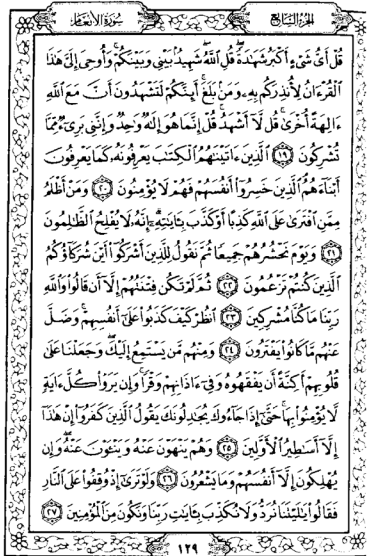 الجزء السابع
سورة الأنعام
قُلْ أَىُّ شَىْءٍ أَكْبَرُ شَهَـٰدَةً قُلِ ٱللَّهُ شَهِيدٌۢ بَيْنِى وَبَيْنَكُمْ وَأُوحِىَ إِلَىَّ هَـٰذَا
ٱلْقُرْءَانُ لِأُنذِرَكُم بِهِۦ وَمَنۢ بَلَغَ أَئِنَّكُمْ لَتَشْهَدُونَ أَنَّ مَعَ ٱللَّهِ
ءَالِهَةً أُخْرَىٰ قُل لَّآ أَشْهَدُ قُلْ إِنَّمَا هُوَ إِلَـٰهٌ وَٰحِدٌ وَإِنَّنِى بَرِىٓءٌ مِّمَّا
تُشْرِكُونَ ١٩ ٱلَّذِينَ ءَاتَيْنَـٰهُمُ ٱلْكِتَـٰبَ يَعْرِفُونَهُۥ كَمَا يَعْرِفُونَ
أَبْنَآءَهُمُ ٱلَّذِينَ خَسِرُوٓا۟ أَنفُسَهُمْ فَهُمْ لَا يُؤْمِنُونَ ٢٠ وَمَنْ أَظْلَمُ
مِمَّنِ ٱفْتَرَىٰ عَلَى ٱللَّهِ كَذِبًا أَوْ كَذَّبَ بِـَٔايَـٰتِهِۦٓ إِنَّهُۥ لَا يُفْلِحُ ٱلظَّـٰلِمُونَ
٢١ وَيَوْمَ نَحْشُرُهُمْ جَمِيعًا ثُمَّ نَقُولُ لِلَّذِينَ أَشْرَكُوٓا۟ أَيْنَ شُرَكَآؤُكُمُ
ٱلَّذِينَ كُنتُمْ تَزْعُمُونَ ٢٢ ثُمَّ لَمْ تَكُن فِتْنَتُهُمْ إِلَّآ أَن قَالُوا۟ وَٱللَّهِ
رَبِّنَا مَا كُنَّا مُشْرِكِينَ ٢٣ ٱنظُرْ كَيْفَ كَذَبُوا۟ عَلَىٰٓ أَنفُسِهِمْ وَضَلَّ
عَنْهُم مَّا كَانُوا۟ يَفْتَرُونَ ٢٤ وَمِنْهُم مَّن يَسْتَمِعُ إِلَيْكَ وَجَعَلْنَا عَلَىٰ
قُلُوبِهِمْ أَكِنَّةً أَن يَفْقَهُوهُ وَفِىٓ ءَاذَانِهِمْ وَقْرًا وَإِن يَرَوْا۟ كُلَّ ءَايَةٍ
لَّا يُؤْمِنُوا۟ بِهَا حَتَّىٰٓ إِذَا جَآءُوكَ يُجَـٰدِلُونَكَ يَقُولُ ٱلَّذِينَ كَفَرُوٓا۟ إِنْ هَـٰذَآ
إِلَّآ أَسَـٰطِيرُ ٱلْأَوَّلِينَ ٢٥ وَهُمْ يَنْهَوْنَ عَنْهُ وَيَنْـَٔوْنَ عَنْهُ وَإِن
يُهْلِكُونَ إِلَّآ أَنفُسَهُمْ وَمَا يَشْعُرُونَ ٢٦ وَلَوْ تَرَىٰٓ إِذْ وُقِفُوا۟ عَلَى ٱلنَّارِ
فَقَالُوا۟ يَـٰلَيْتَنَا نُرَدُّ وَلَا نُكَذِّبَ بِـَٔايَـٰتِ رَبِّنَا وَنَكُونَ مِنَ ٱلْمُؤْمِنِينَ ٢٧
١٢٩